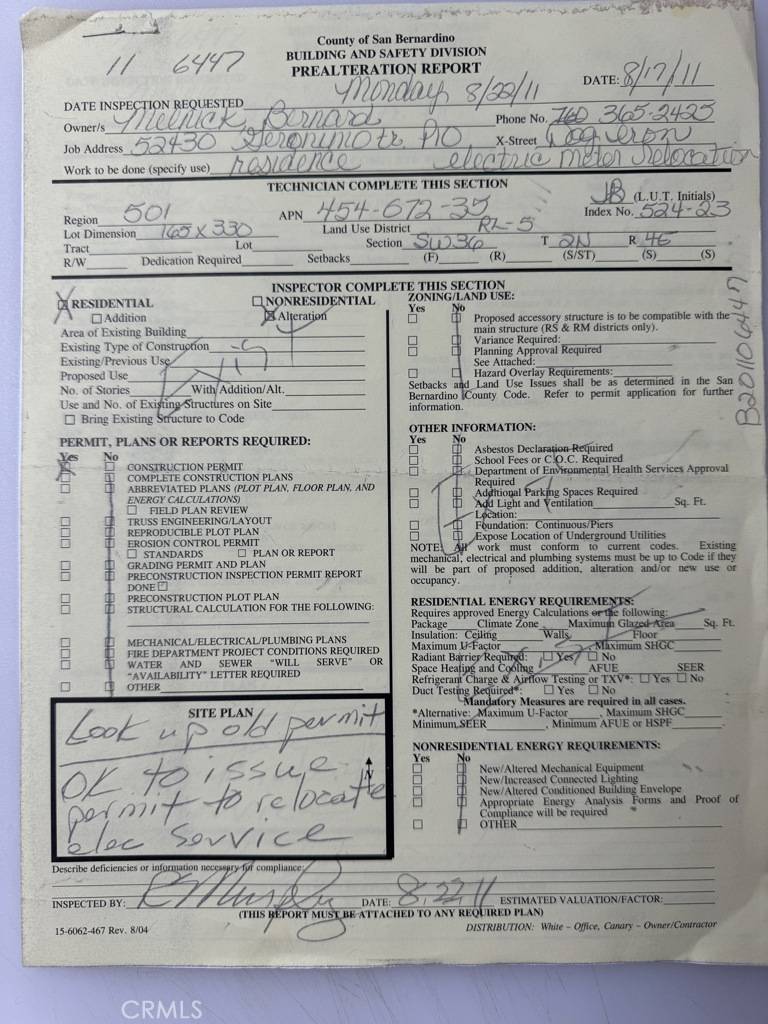 County of San Bernardino
BUILDING AND SAFETY DIVISION
PREALTERATION REPORT
11 6447
DATE: 8/17/11
DATE INSPECTION REQUESTED Monday 8/22/11
Owner/s Melnick, Bernard Phone No. 760 365-2425
Job Address 52430 Geronimo tr. PIO X-Street Dog Iron
Work to be done (specify use) residence electric motor relocation
TECHNICIAN COMPLETE THIS SECTION
JB (L.U.T. Initials)
Region 501 APN 454-672-35 Index No. 524-23
Lot Dimension 165 x 330 Land Use District RL-5
Tract Lot Section SW36 T 2N R 4E
R/W Dedication Required Setbacks (F) (R) (S/ST) (S) (S)
INSPECTOR COMPLETE THIS SECTION
RESIDENTIAL NONRESIDENTIAL
Addition Alteration
Area of Existing Building
Existing Type of Construction
Existing/Previous Use
Proposed Use
No. of Stories With Addition/Alt.
Use and No. of Existing Structures on Site
Bring Existing Structure to Code
PERMIT, PLANS OR REPORTS REQUIRED:
Yes No
CONSTRUCTION PERMIT
COMPLETE CONSTRUCTION PLANS
ABBREVIATED PLANS (PLOT PLAN, FLOOR PLAN, AND
ENERGY CALCULATIONS)
FIELD PLAN REVIEW
TRUSS ENGINEERING/LAYOUT
REPRODUCIBLE PLOT PLAN
EROSION CONTROL PERMIT
STANDARDS PLAN OR REPORT
GRADING PERMIT AND PLAN
PRECONSTRUCTION INSPECTION PERMIT REPORT
DONE
PRECONSTRUCTION PLOT PLAN
STRUCTURAL CALCULATION FOR THE FOLLOWING:
MECHANICAL/ELECTRICAL/PLUMBING PLANS
FIRE DEPARTMENT PROJECT CONDITIONS REQUIRED
WATER AND SEWER "WILL SERVE" OR
"AVAILABILITY" LETTER REQUIRED
OTHER
SITE PLAN
Look up old permit
OK to issue
N
permit to relocate
elec Service
ZONING/LAND USE:
Yes No
Proposed accessory structure is to be compatible with the
main structure (RS & RM districts only).
Variance Required:
Planning Approval Required
See Attached:
Hazard Overlay Requirements:
Setbacks and Land Use Issues shall be as determined in the San
Bernardino County Code. Refer to permit application for further
information.
OTHER INFORMATION:
Yes No
Asbestos Declaration Required
School Fees or C.O.C. Required
Department of Environmental Health Services Approval
Required
Additional Parking Spaces Required
Add Light and Ventilation Sq. Ft.
Location:
Foundation: Continuous/Piers
Expose Location of Underground Utilities
NOTE: All work must conform to current codes. Existing
mechanical, electrical and plumbing systems must be up to Code if they
will be part of proposed addition, alteration and/or new use or
occupancy.
RESIDENTIAL ENERGY REQUIREMENTS:
Requires approved Energy Calculations or the following:
Package Climate Zone Maximum Glazed Area Sq. Ft.
Insulation: Ceiling Walls Floor
Maximum U-Factor Maximum SHGC
Radiant Barrier Required: Yes No
Space Heating and Cooling AFUE SEER
Refrigerant Charge & Airflow Testing or TXV*: Yes No
Duct Testing Required*: Yes No
Mandatory Measures are required in all cases.
*Alternative: Maximum U-Factor, Maximum SHGC
Minimum SEER, Minimum AFUE or HSPF
NONRESIDENTIAL ENERGY REQUIREMENTS:
Yes No
New/Altered Mechanical Equipment
New/Increased Connected Lighting
New/Altered Conditioned Building Envelope
Appropriate Energy Analysis Forms and Proof of
Compliance will be required
OTHER
B201106447
Describe deficiencies or information necessary for compliance:
INSPECTED BY: R Murphy DATE: 8.22.11 ESTIMATED VALUATION/FACTOR:
(THIS REPORT MUST BE ATTACHED TO ANY REQUIRED PLAN)
15-6062-467 Rev. 8/04 DISTRIBUTION: White – Office, Canary – Owner/Contractor
CRMLS